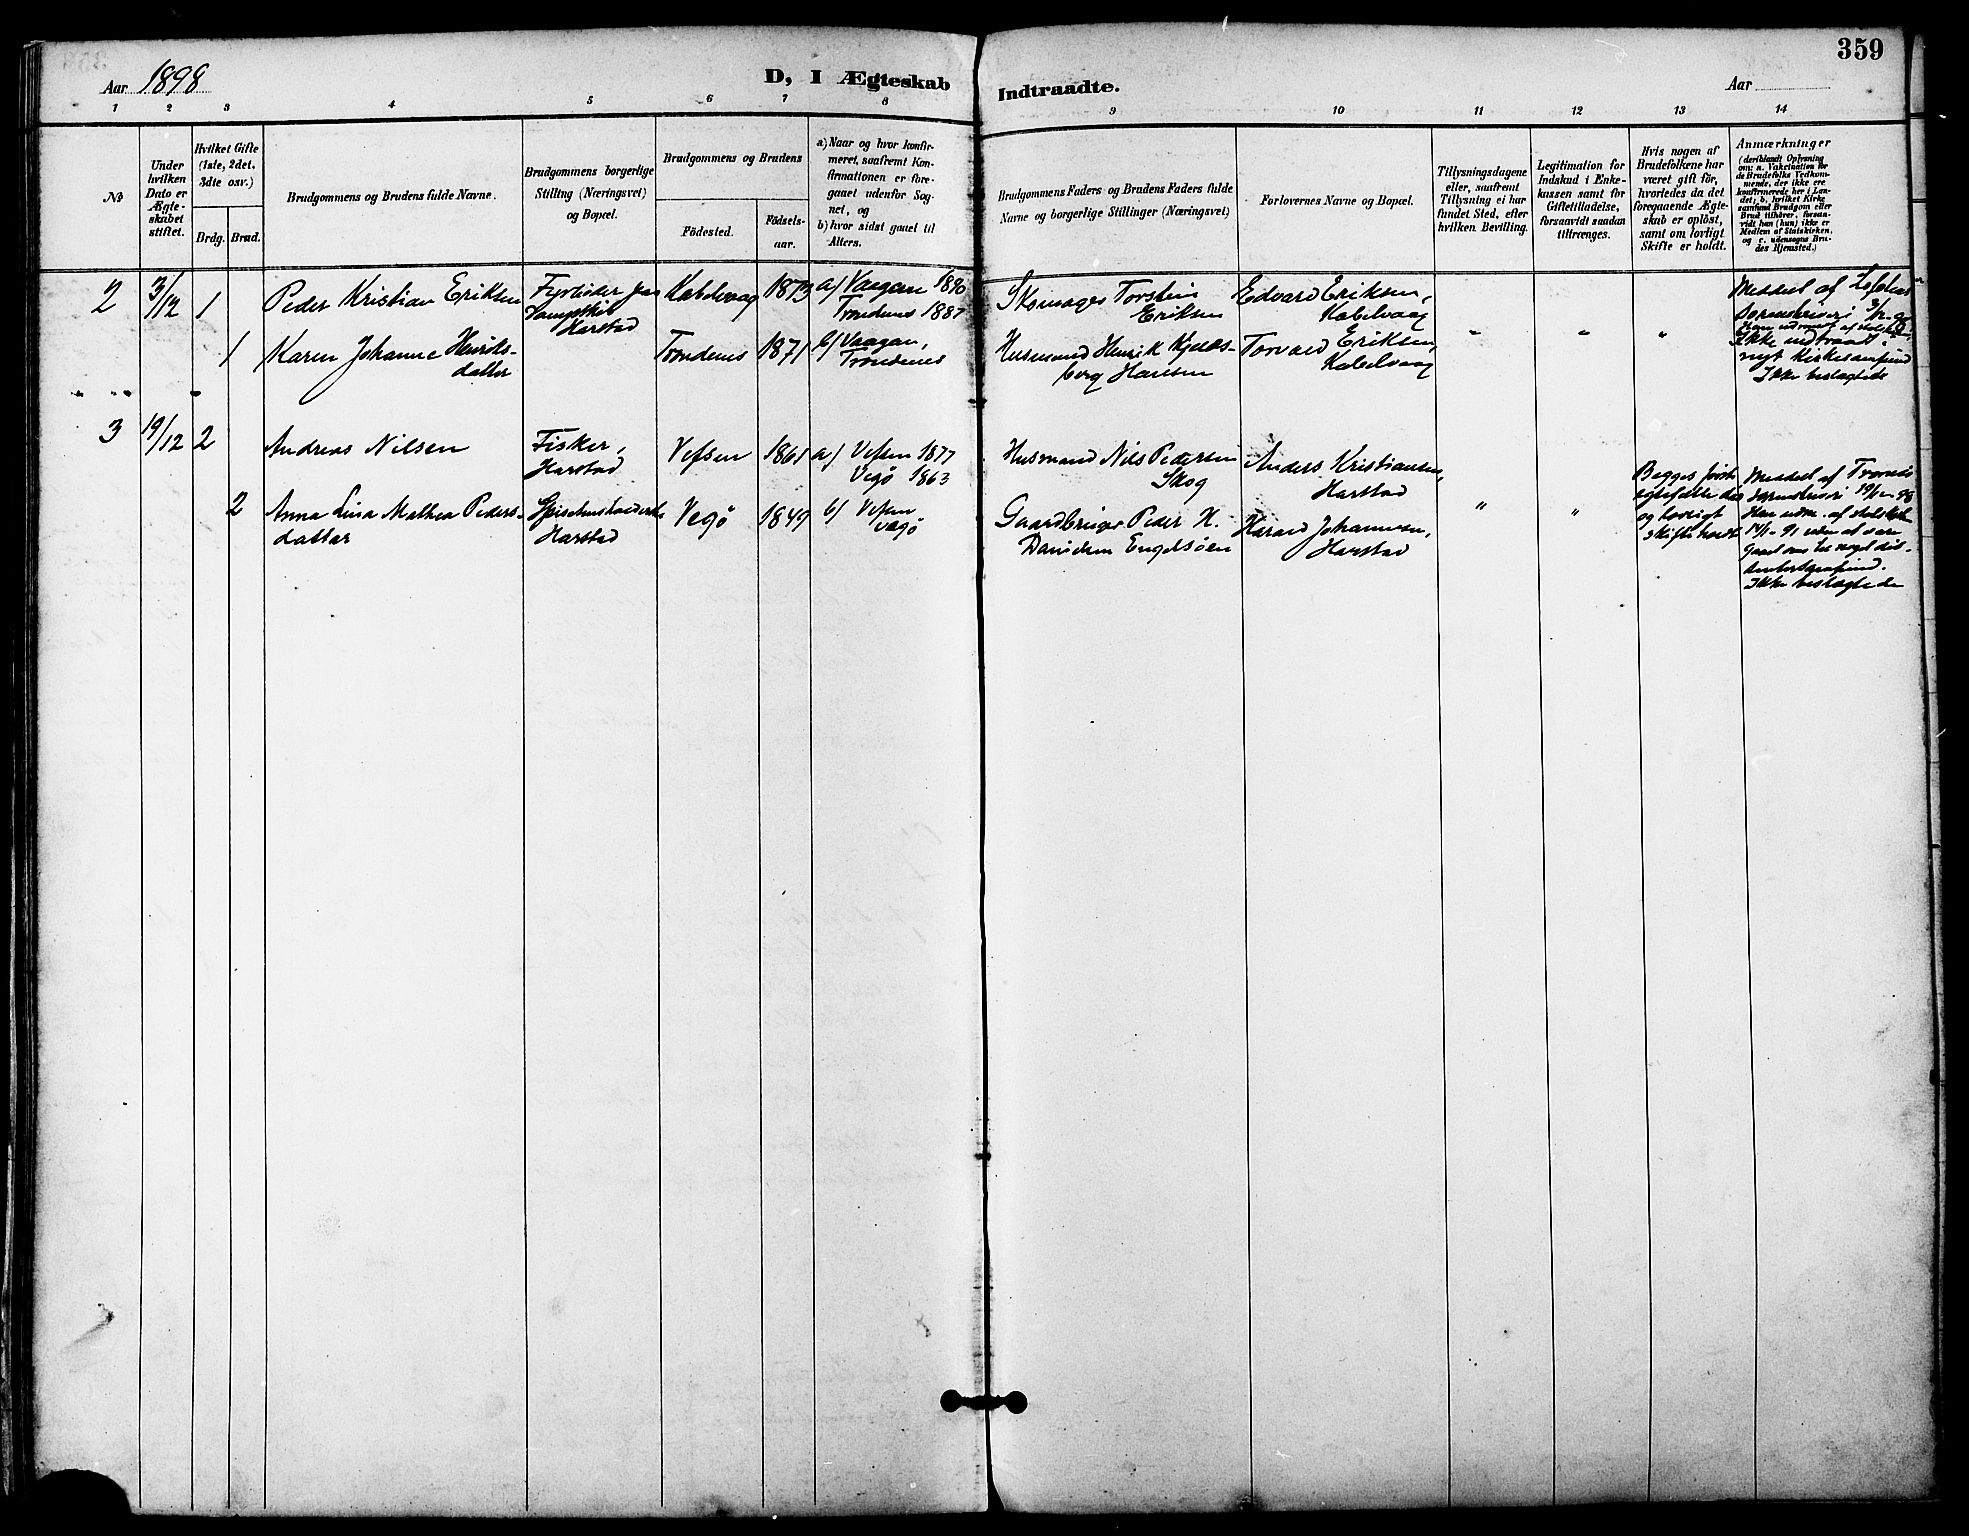 359
Aar 1898
D, I Ægteskab
Indtraadte.
Aar
1 2 3 4 5 6 7 8 9 10 11 12 13 14
No
Under
hvilken
Dato er
Ægte-
skabet
stiftet.
Hvilket Gifte
(1ste, 2det,
3dte osv.)
Brdg. Brud.
Brudgommens og Brudens fulde Navne.
Brudgommens borgerlige
Stilling (Næringsvei)
og Bopæl.
Brudgommens og Brudens
Fødested.
Fødsels-
aar.
a) Naar og hvor konfir-
meret, saafremt Kon-
firmationen er fore-
gaaet udenfor Sog-
net, og
b) hvor sidst gaaet til
Alters.
Brudgommens Faders og Brudens Faders fulde
Navne og borgerlige Stillinger (Næringsvei)
Forlovernes Navne og Bopæl.
Tillysningsdagene
eller, saafremt
Tillysning ei har
fundet Sted, efter
hvilken Bevilling.
Legitimation for
Indskud i Enke-
kassen samt for
Giftetilladelse,
forsaavidt saadan
tiltrænges.
Hvis nogen af
Brudefolkene har
været gift før,
hvorledes da det
foregaaende Ægte-
skab er opløst,
samt om lovligt
Skifte er holdt.
Anmærkninger
(deriblandt Oplysning
om: a. Vakcination for
de Brudefolks Vedkom-
mende, der ikke ere
konfirmerede her i Lan-
det; b. hvilket Kirke-
samfund Brudgom eller
Brud tilhører, forsaa-
vidt han (hun) ikke er
Medlem af Statskirken,
og c. udensogns Bru-
des Hjemsted.)
2 3/12 1 Peder Kristian Eriksen
Fyrbøder paa
Dampskib
Harstad
Kabelvaag 1873
a/ Vaagan 1890
Trondenes 1887
Skomager Torstein
Eriksen
Edvard Eriksen,
Kabelvaag
" " "
Meddelt af Lofotens
Sorenskriveri
Han udmeldt af statsk.
Ikke indtraadt i
nyt Kirkesamfund
Ikke beslægtede
1 Karen Johanne Henriks-
datter
Trondenes 1871
b/ Vaagan,
Trondenes
Husmand Henrik Kjeldes-
berg Hansen
Torvald Eriksen,
Kabelvaag
" " "
3 19/12 2 Andreas Nilsen
Fisker,
Harstad
Vefsen 1861
a/ Vefsen 1877
Vegø 1863
Husmand Nils Pedersen
Skog
Anders Kristiansen,
Harstad
" "
Begges første
egtefælle død
og lovligt
skifte holdt
Meddelt af Tromsø
Sorenskriveri 19/12-98
Han udm. af statskirk
14/1-91 uden at være
gaaet over til noget dis-
sentersamfund.
Ikke beslægtede
2 Anna Lina Mathea Peders-
datter
Harstad
Vegø 1849
b/ Vefsen
Vegø
Gaardbruger Peder H.
Danielsen Engelsøen
Harald Johannesen,
Harstad